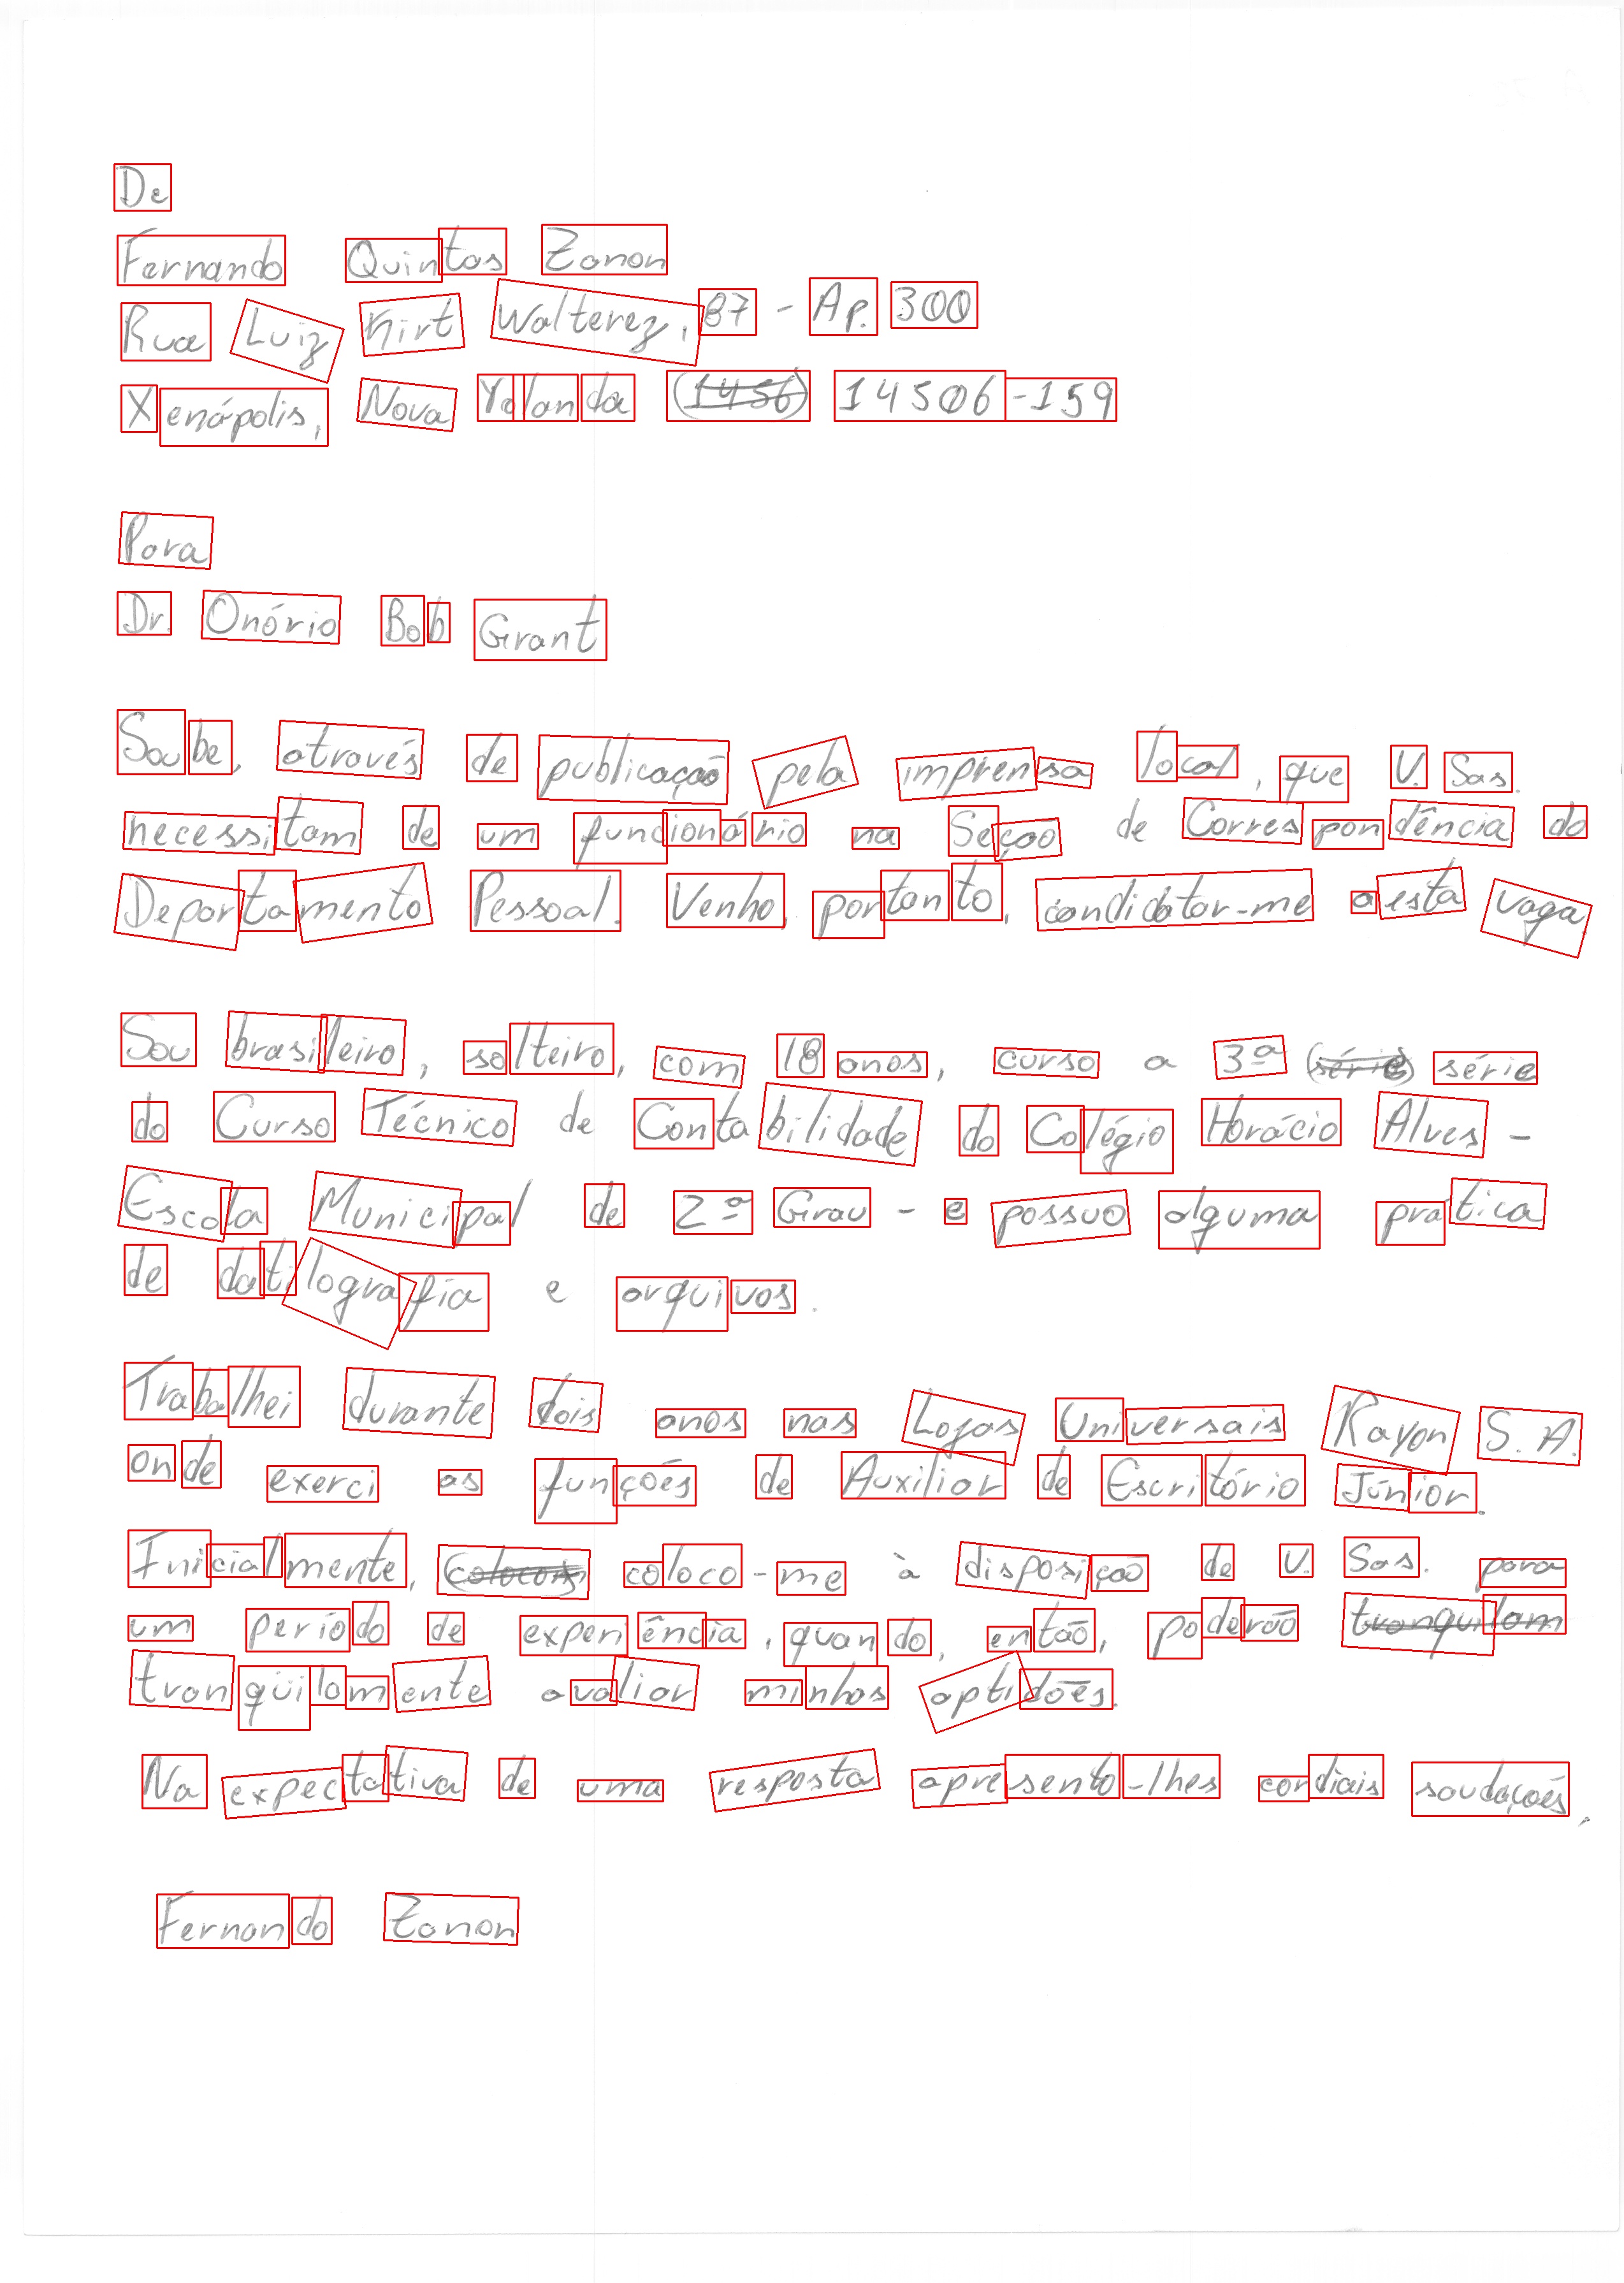 De
Fernando Quintas Zanon
Rua Luiz Kirt Walterez, 87 - Ap. 300
Xenápolis, Nova Yolanda (1456) 14506-159
Para
Dr. Onório Bob Grant
Soube, através de publicação pela imprensa local, que V. Sas.
necessitam de um funcionário na Seção de Correspondência do
Departamento Pessoal. Venho, portanto, candidatar-me a esta vaga.
Sou brasileiro, solteiro, com 18 anos, curso a 3ª (série) série
do Curso Técnico de Contabilidade do Colégio Horácio Alves -
Escola Municipal de 2º Grau - e possuo alguma prática
de datilografia e arquivos.
Trabalhei durante dois anos nas Lojas Universais Rayon S.A.
onde exerci as funções de Auxiliar de Escritório Júnior.
Inicialmente, coloco-me à disposição de V. Sas. para
um período de experiência, quando, então, poderão tranquilam
tranqüilamente avaliar minhas aptidões.
Na expectativa de uma resposta apresento-lhes cordiais saudações,
Fernando Zanon